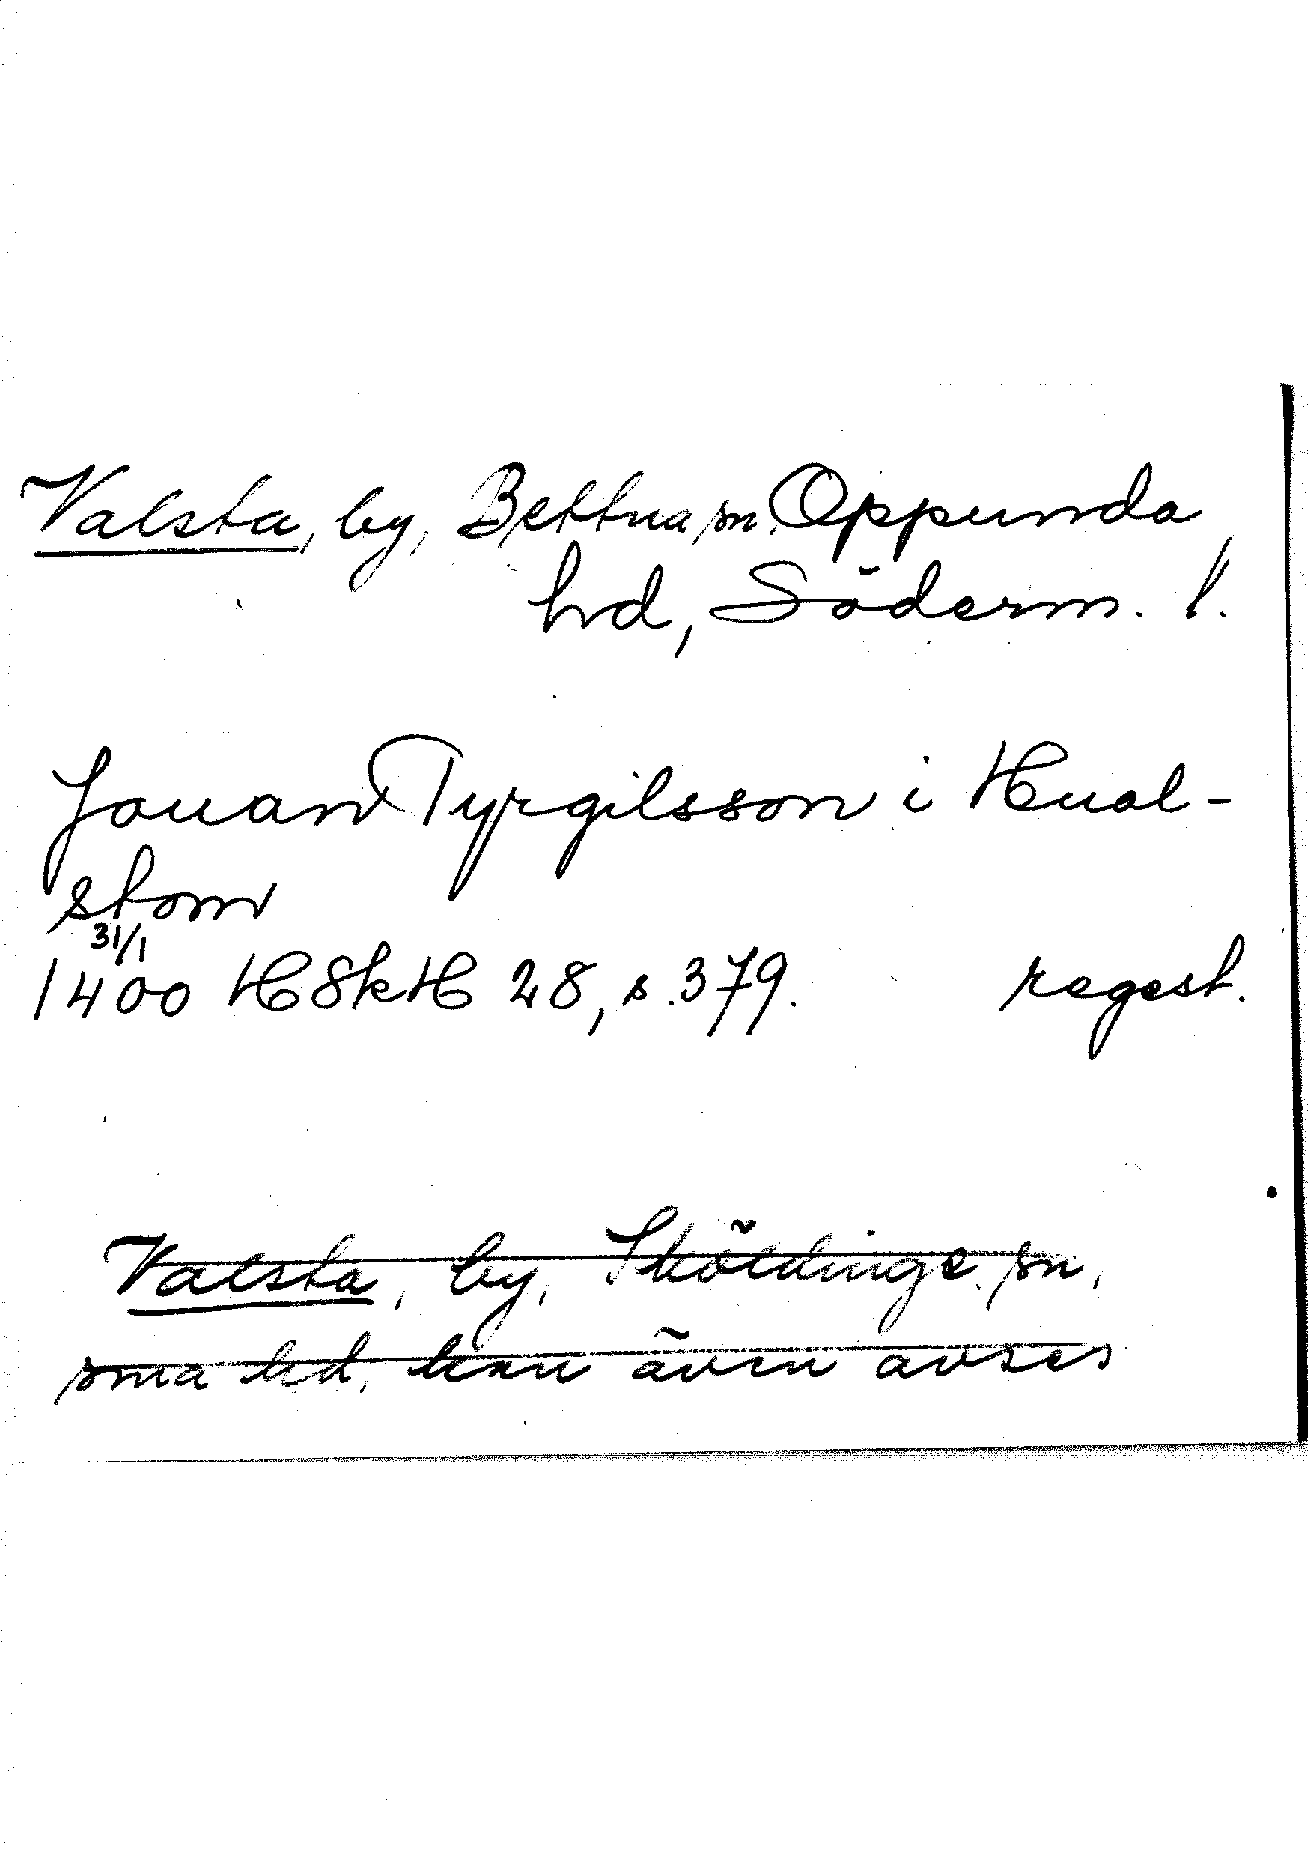 Valsta, by, Bettna sn, Oppunda
hd, Söderm. l.
Jouan Tyrgilsson i Hual-
stom
31/1
1400 HSkH 28, s. 379. regest.
Valsta, by, Sköldinge sn,
sma hd, kan även avses